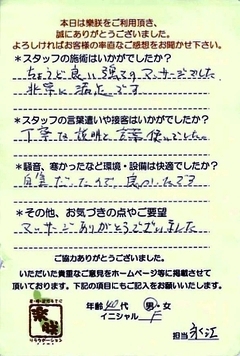 本日は楽朕をご利用頂き、
誠にありがとうございました。
よろしければお客様の率直なご感想をお聞かせ下さい。
*スタッフの施術はいかがでしたか?
ちょうど良い強さのマッサージでした
非常に満足です
*スタッフの言葉遣いや接客はいかがでしたか?
丁寧な説明と言葉使いでした。
*騒音、寒かったなど環境・設備は快適でしたか?
自室だったので良かったです
*その他、お気づきの点やご要望
マッサージありがとうございました
ご協力ありがとうございました。
いただいた貴重なご意見をホームページ等に掲載させて
頂いております。下記の項目にもご記入をお願いします。
年齢 40代 男・女
イニシャル F
リラクゼーション
担当 永江